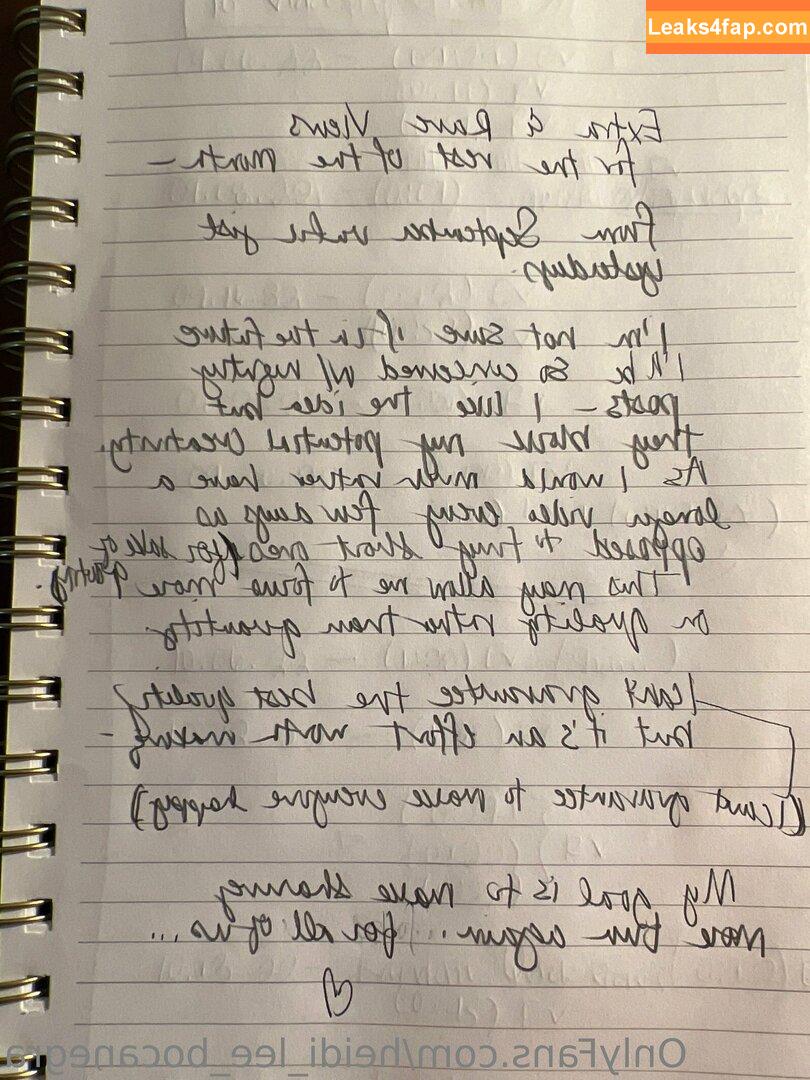 Leaks4fap.com
Extra & Rare Views
for the rest of the month -
from September until just
yesterdays.
I'm not sure if in the future
I'll be so concerned w/ nightly
posts - I like the idea but
they block my potential creativity.
As I would much rather have a
longer video every few days as
opposed to tiny short ones (for sake of
quantity.
This may allow me to focus more
on quality rather than quantity.
I can't guarantee the best quality
but it's an effort worth making -
(I can't guarantee to make everyone happy)
My goal is to make sharing
more fun again... for all of us...
OnlyFans.com/heidi_lee_bocanegra